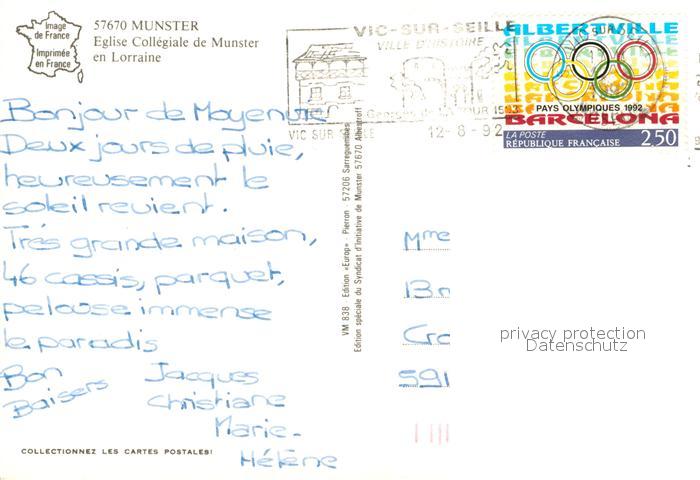 Image
de France
Imprimée
en France
57670 MUNSTER
Eglise Collégiale de Munster
en Lorraine
VIC-SUR-SEILLE
VILLE D'HISTOIRE
VIC SUR
12-8-92
ALBERTVILLE
PAYS OLYMPIQUES 1992
BARCELONA
LA POSTE
RÉPUBLIQUE FRANÇAISE
2,50
Bonjour de Moyenvic
Deux jours de pluie,
heureusement le
soleil revient.
Très grande maison,
46 cassis, parquet,
pelouse immense
le paradis
Bon
Baisers
Jacques
Christiane
Marie-
Hélène
COLLECTIONNEZ LES CARTES POSTALES!
VM 838 Edition «Europ» Pierron - 57206 Sarreguemines
Edition spéciale du Syndicat d'Initiative de Munster 57670 Albestroff
Mme
13
591
privacy protection
Datenschutz